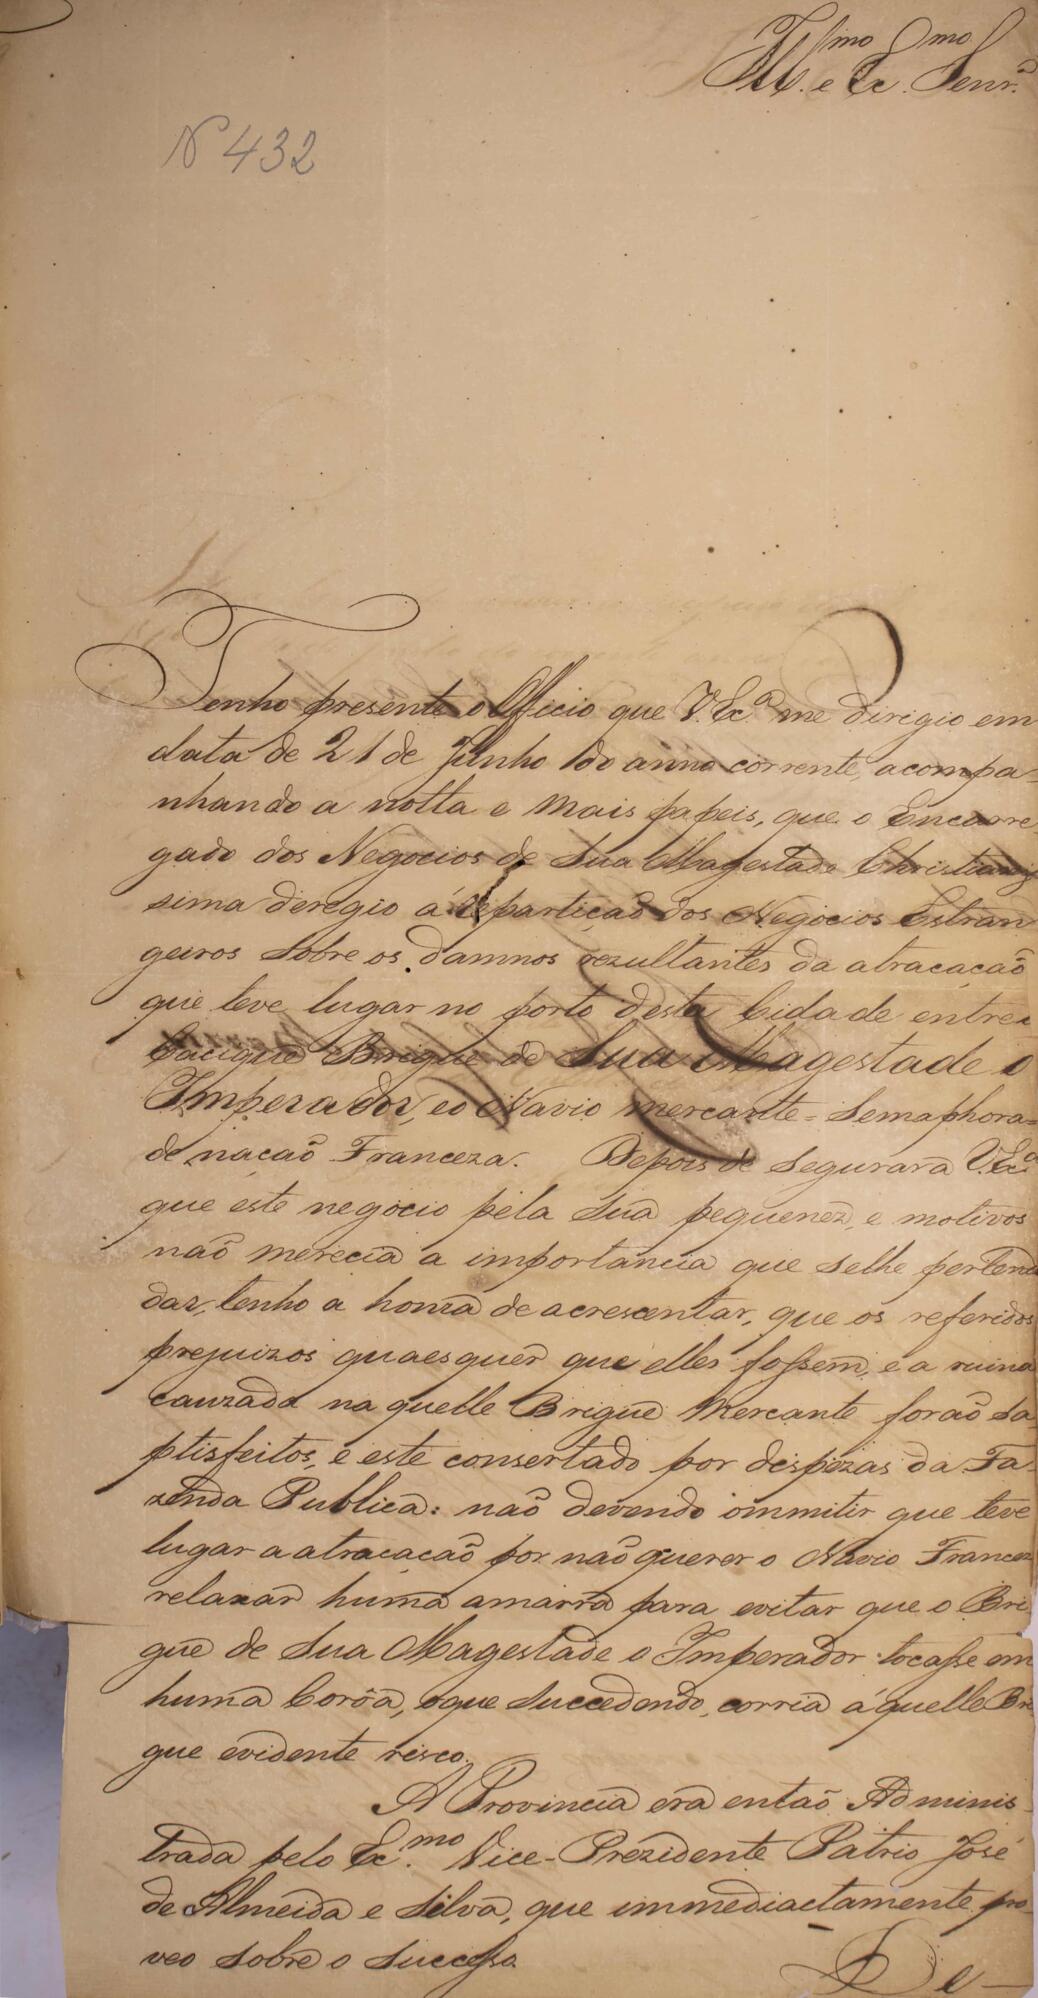 Ill.mo e Ex.mo Senr.
N 432
Tenho presente o Officio que V. Ex.ª me diregio em
data de 21 de Junho do anno corrente, acompa-
nhando a notta e mais papeis, que o Encarre
gado dos Negocios de Sua Magestade Christianis
sima deregio á repartiçaõ dos Negocios Estran
geiros sobre os damnos rezultantes da atracaçaõ
que teve lugar no porto desta Cidade entre o
Cacique Brigue de Sua Magestade o
Imperador, e o Navio mercante = Semaphora =
de naçaõ Franceza. Depois de segurar a V. Ex.ª
que este negocio pela sua pequenez, e motivos
naõ merecia a importancia que selhe pertende
dar, tenho a honra de acrescentar, que os referidos
prejuizos quaesquer que elles fossem, e a ruina
cauzada na quelle Brigue Mercante foraõ sa
ptisfeitos, e este consertado por despezas da Fa-
zenda Publica: naõ devendo ommitir que teve
lugar a atracaçaõ por naõ querer o Navio Francez
relaxar huma amarra para evitar que o Bri
gue de Sua Magestade o Imperador tocasse em
huma Corôa, oque succedendo, corria áquelle Bri
gue evidente risco.
A Provincia era entaõ Adminis
trada pelo Ex.mo Vice-Prezidente Patrio José
de Almeida e Silva, que immediactamente pro
veo sobre o successo.
De-